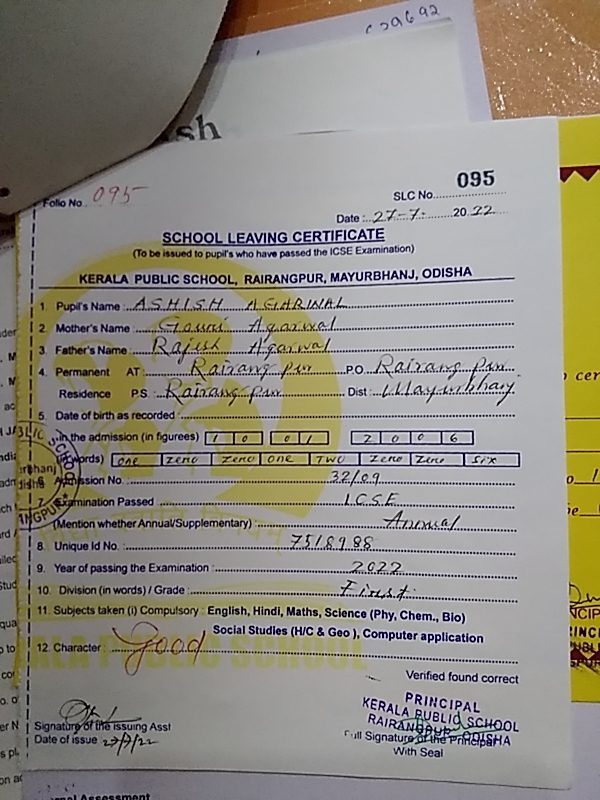 c29692
sh
095
Folio No. 095
SLC No.
Date : 27-7- 2022
SCHOOL LEAVING CERTIFICATE
(To be issued to pupil's who have passed the ICSE Examination)
KERALA PUBLIC SCHOOL, RAIRANGPUR, MAYURBHANJ, ODISHA
1. Pupil's Name : ASHISH AGARWAL
2. Mother's Name : Agarwal
3. Father's Name : Rajesh Agarwal
4. Permanent AT : Rairangpur P.O Rairangpur
Residence P.S. Rairangpur Dist : Mayurbhanj
5. Date of birth as recorded :
in the admission (in figurees) 1 0 01 2 0 0 6
(in words) ONE ZERO ZERO ONE TWO ZERO ZERO SIX
6. Admission No. : 32/09
7. Examination Passed : I.C.S.E
(Mention whether Annual/Supplementary) : Annual
8. Unique Id No. : 7518988
9. Year of passing the Examination : 2022
10. Division (in words) / Grade : First
11. Subjects taken (i) Compulsory : English, Hindi, Maths, Science (Phy, Chem., Bio)
Social Studies (H/C & Geo ), Computer application
12. Character : Good
KERALA PUBLIC SCHOOL
Verified found correct
PRINCIPAL
KERALA PUBLIC SCHOOL
RAIRANGPUR, ODISHA
Signature of the issuing Asst
Full Signature of the Principal
Date of issue 27/7/22
With Seal
Assessment